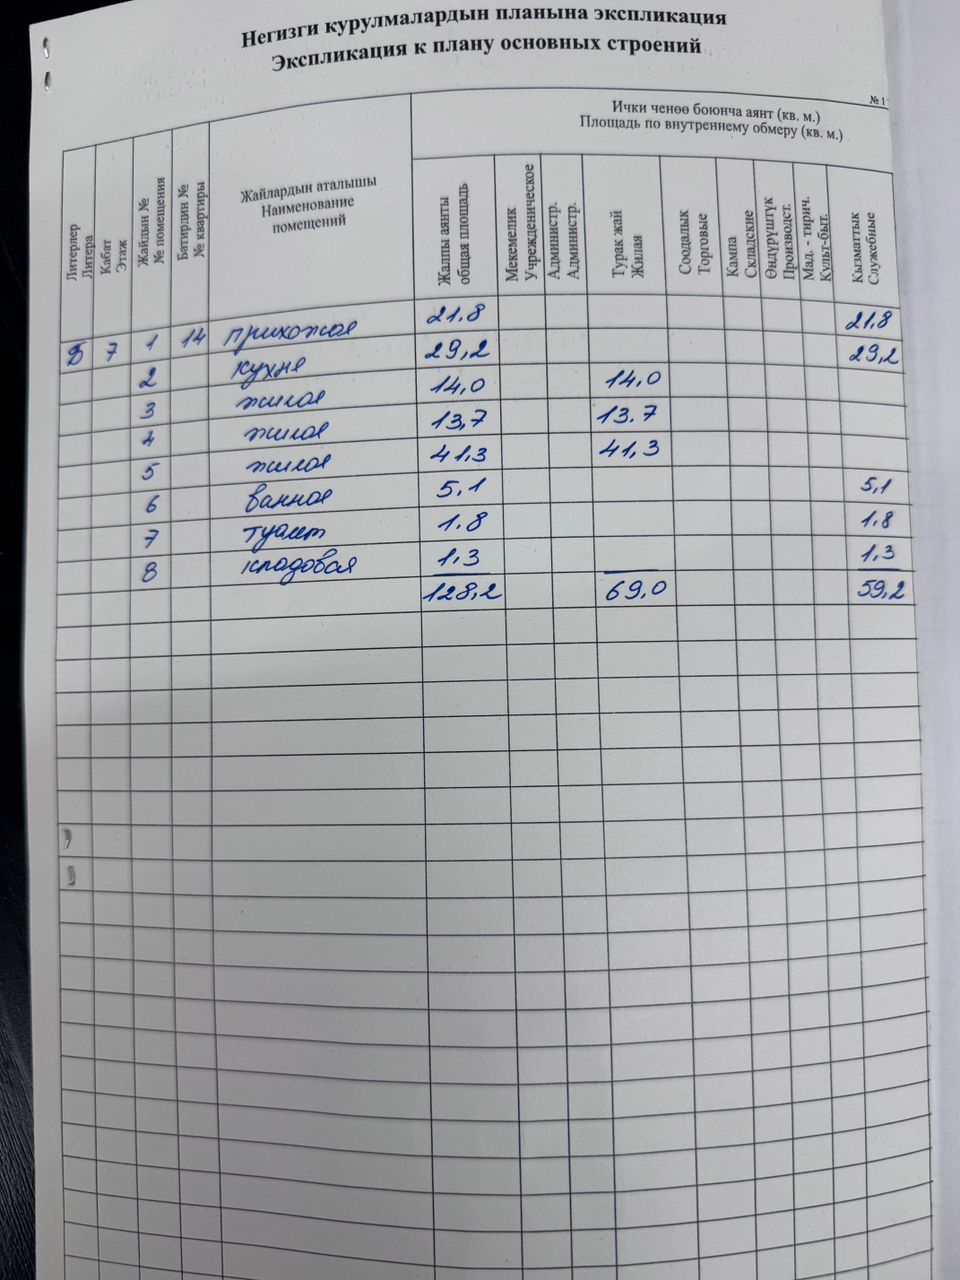 Негизги курулмалардын планына экспликация
Экспликация к плану основных строений
№ 1
Ички ченөө боюнча аянт (кв. м.)
Площадь по внутреннему обмеру (кв. м.)
Литерлер
Литера
Кабат
Этаж
Жайдын №
№ помещения
Батирдин №
№ квартиры
Жайлардын аталышы
Наименование
помещений
Жалпы аянты
общая площадь
Мекемелик
Учрежденическое
Администр.
Администр.
Турак жай
Жилая
Соодалык
Торговые
Кампа
Складские
Өндүрүштүк
Производст.
Мад. - тирич.
Культ-быт.
Кызматтык
Служебные
Б 7 1 14 прихожая 21.8 21.8
2 кухня 29,2 29,2
3 жилая 14,0 14.0
4 жилая 13,7 13.7
5 жилая 41,3 41,3
6 ванная 5,1 5,1
7 туалет 1.8 1.8
8 кладовая 1,3 1,3
128,2 69,0 59,2